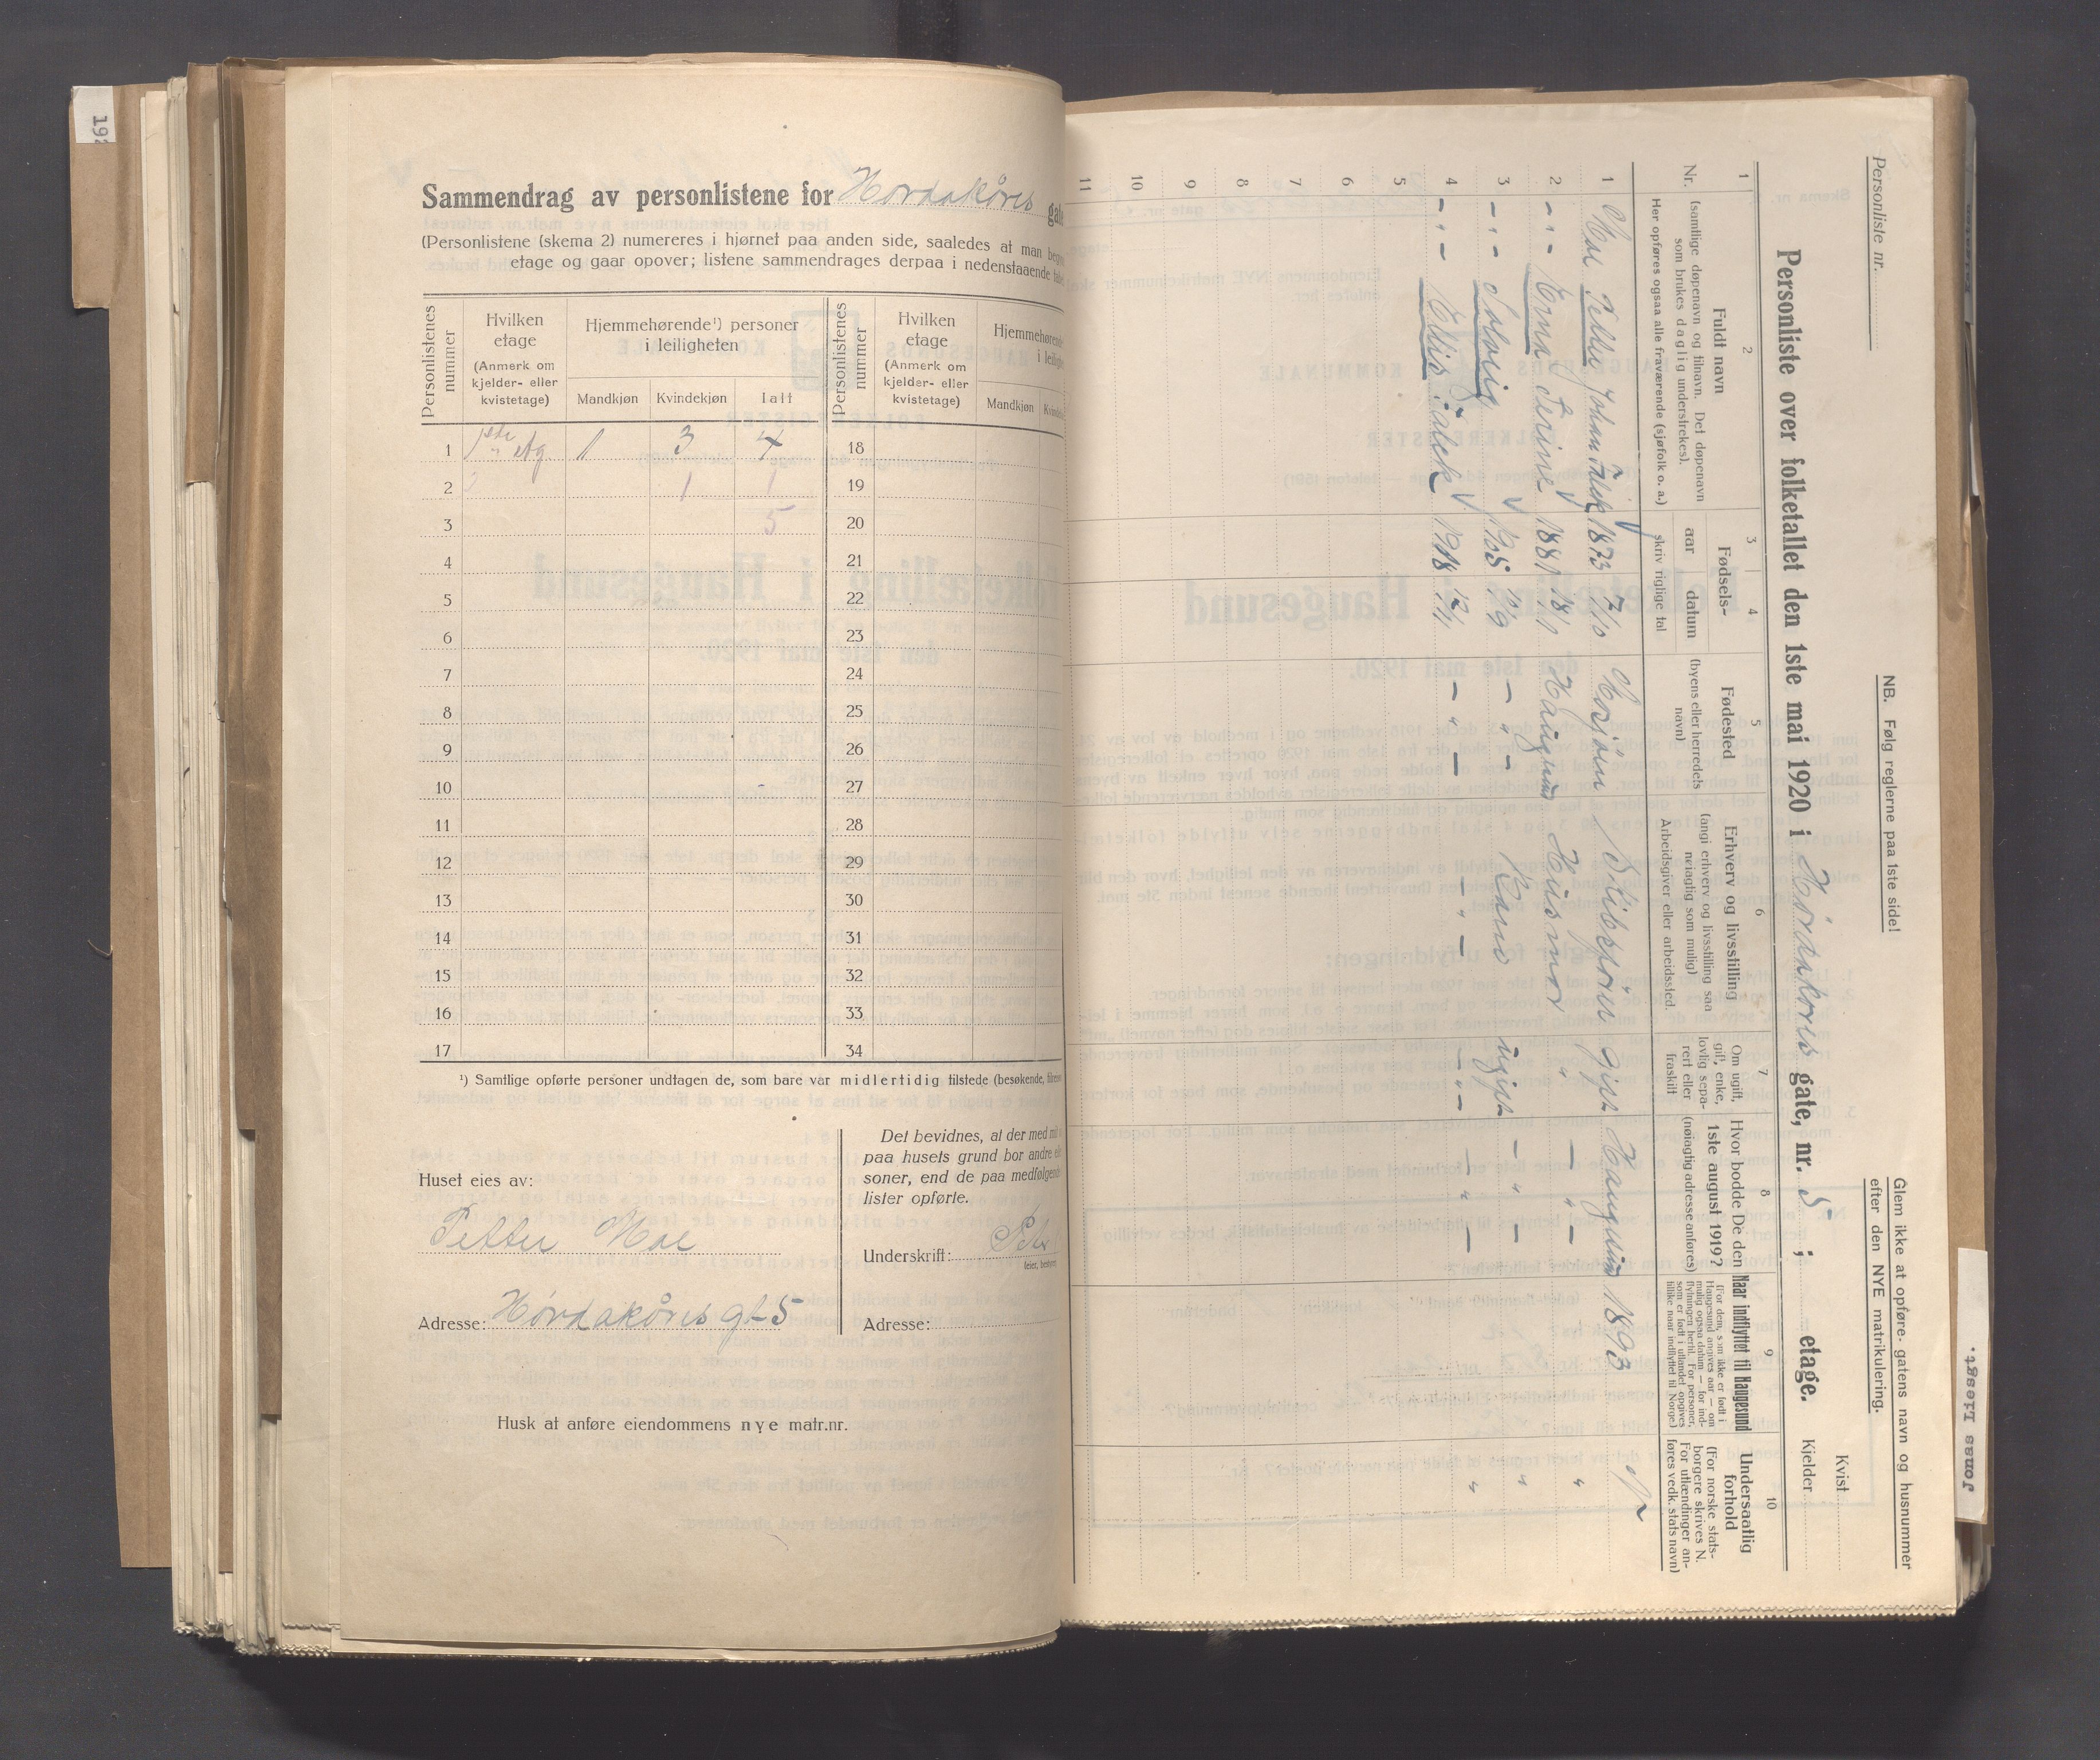 192
Sammendrag av personlistene for Hordakåres gate
(Personlistene (skema 2) numereres i hjørnet paa anden side, saaledes at man
etage og gaar opover; listene sammendrages derpaa i nedenstaaende
Personlistenes nummer
Hvilken etage
(Anmerk om kjelder- eller kvistetage)
Hjemmehørende¹) personer i leiligheten
Mandkjøn Kvindekjøn Ialt
Personlistenes nummer
Hvilken etage
(Anmerk om kjelder- eller kvistetage)
Hjemmehørende
Mandkjøn
1 1ste etg. 1 3 4 18
2 1 1 19
3 5 20
4 21
5 22
6 23
7 24
8 25
9 26
10 27
11 28
12 29
13 30
14 31
15 32
16 33
17 34
¹) Samtlige opførte personer undtagen de, som bare var midlertidig tilstede (besøkende,
Huset eies av:
Petter Moe
Adresse: Hørdakåres gt 5
Det bevidnes, at der med
paa husets grund bor andre
soner, end de paa medfølgende
lister opførte.
Underskrift:
Adresse:
Husk at anføre eiendommens nye matr.nr.
Personliste nr.
NB. Følg reglerne paa 1ste side!
Glem ikke at opføre gatens navn og husnummer
efter den NYE matrikulering.
Personliste over folketallet den 1ste mai 1920 i Hørdakåres gate, nr. 5 ; etage.
Kvist
Kjelder
1 2 3 4 5 6 7 8 9 10
Nr.
Fuldt navn
(samtlige døpenavn og tilnavn. Det døpenavn
som brukes daglig understrekes).
Her opføres ogsaa alle fraværende (sjøfolk o. a.)
Fødsels-
aar datum
skriv riglige tal
Fødested
(byens eller herredets
navn)
Erhverv og livsstilling
(angi erhverv og livsstilling saa
nøiagtig som mulig)
Arbeidsgiver eller arbeidssted.
Om ugift,
gift, enke,
lovlig sepa-
rert eller
fraskilt
Hvor bodde De den
1ste august 1919?
(nøiagtig adresse anføres)
Naar indflyttet til Haugesund
(For dem, som ikke er født i
Haugesund angives aar — om
mulig ogsaa datum — for ind-
flytningen hertil. For personer,
som er født i utlandet opgives
tillike naar indflyttet til Norge)
Undersaatlig
forhold
(For norske stats-
borgere skrives N.
For utlændinger an-
føres vedk. stats navn)
1 Moe Petter Johan 1873 7/10 Mosjøen gift Haugesund 1893 N
2 - " - Erna Serine 1881 18/1 Haugesund Husmor " - " - "
3 - " - Solveig 1905 - " - Barn ugift - " - "
4 - " - 1918 - " - - " - - " - - " - "
5
6
7
8
9
10
11
Jonas Lisegt.